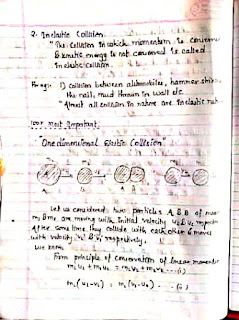 2. Inelastic Collision.
"The collision in which momentum is conserve
& kinetic energy is not conserved is called
Inelastic collision.
1) collision between automobiles, hammer
the nail, mud thrown in wall etc.
"Almost all collision in nature are Inelastic
Most Important.
One dimensional Elastic Collision
A B A B
Let us considered two particles A & B of
m₁ & m₂ are moving with initial velocity u₁ & u₂
After some time they collide with each other & moves
with velocity v₁ & v₂ respectively.
we know
From principle of conservation of linear
m₁u₁ + m₂u₂ = m₁v₁ + m₂v₂ --- (i)
m₁(u₁-v₁) = m₂(v₂-u₂) -- (ii)